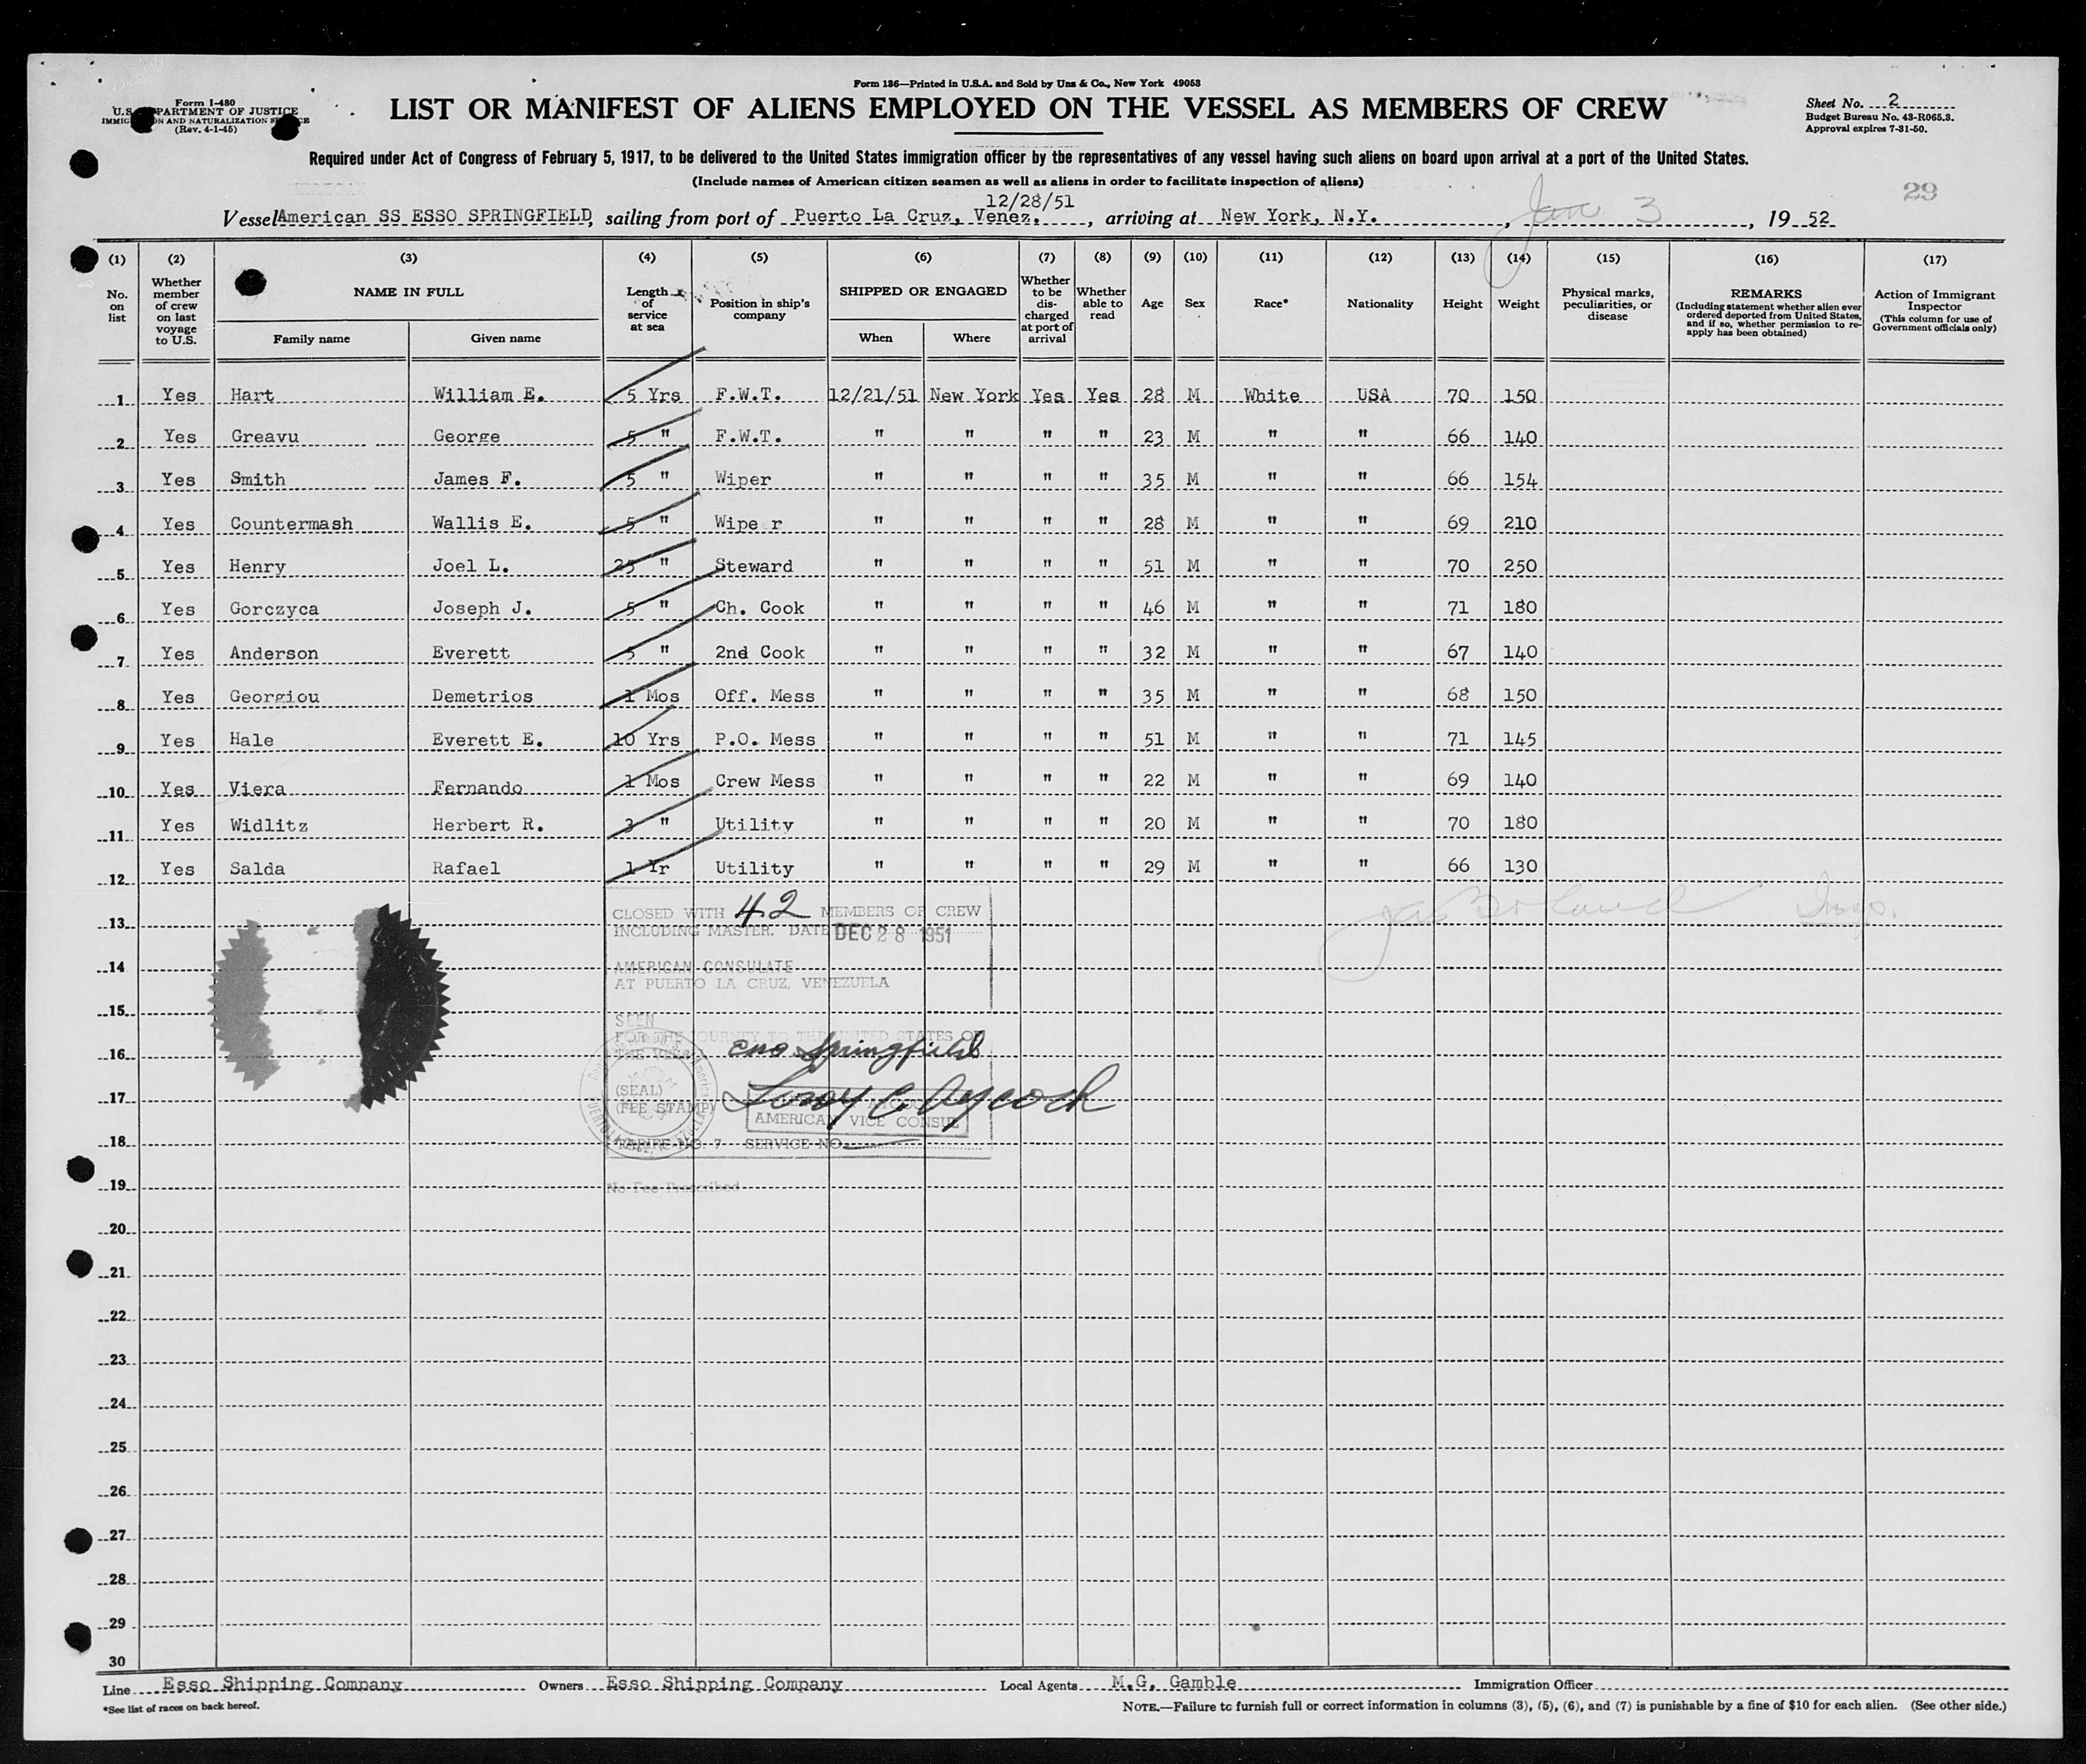 Form 136—Printed in U.S.A. and Sold by Unz & Co., New York 49053
Form I-480
U.S. DEPARTMENT OF JUSTICE
IMMIGRATION AND NATURALIZATION SERVICE
(Rev. 4-1-45)
LIST OR MANIFEST OF ALIENS EMPLOYED ON THE VESSEL AS MEMBERS OF CREW
Sheet No. 2
Budget Bureau No. 43-R065.3.
Approval expires 7-31-50.
Required under Act of Congress of February 5, 1917, to be delivered to the United States immigration officer by the representatives of any vessel having such aliens on board upon arrival at a port of the United States.
(Include names of American citizen seamen as well as aliens in order to facilitate inspection of aliens)
29
12/28/51
Vessel American SS ESSO SPRINGFIELD, sailing from port of Puerto La Cruz, Venez., arriving at New York, N.Y., Jan 3, 19 52
(1) (2) (3) (4) (5) (6) (7) (8) (9) (10) (11) (12) (13) (14) (15) (16) (17)
No. on list
Whether member of crew on last voyage to U.S.
NAME IN FULL
Family name Given name
Length of service at sea
Position in ship's company
SHIPPED OR ENGAGED
When Where
Whether to be discharged at port of arrival
Whether able to read
Age
Sex
Race*
Nationality
Height
Weight
Physical marks, peculiarities, or disease
REMARKS
(Including statement whether alien ever ordered deported from United States, and if so, whether permission to re-apply has been obtained)
Action of Immigrant Inspector
(This column for use of Government officials only)
1 Yes Hart William E. 5 Yrs F.W.T. 12/21/51 New York Yes Yes 28 M White USA 70 150
2 Yes Greavu George 5 " F.W.T. " " " " 23 M " " 66 140
3 Yes Smith James F. 5 " Wiper " " " " 35 M " " 66 154
4 Yes Countermash Wallis E. 5 " Wipe r " " " " 28 M " " 69 210
5 Yes Henry Joel L. 25 " Steward " " " " 51 M " " 70 250
6 Yes Gorczyca Joseph J. 5 " Ch. Cook " " " " 46 M " " 71 180
7 Yes Anderson Everett 5 " 2nd Cook " " " " 32 M " " 67 140
8 Yes Georgiou Demetrios 1 Mos Off. Mess " " " " 35 M " " 68 150
9 Yes Hale Everett E. 10 Yrs P.O. Mess " " " " 51 M " " 71 145
10 Yes Viera Fernando 1 Mos Crew Mess " " " " 22 M " " 69 140
11 Yes Widlitz Herbert R. 3 " Utility " " " " 20 M " " 70 180
12 Yes Salda Rafael 1 Yr Utility " " " " 29 M " " 66 130
13
14
15
16
17
18
19
20
21
22
23
24
25
26
27
28
29
30
CLOSED WITH 42 MEMBERS OF CREW
INCLUDING MASTER. DATE DEC 28 1951
AMERICAN CONSULATE
AT PUERTO LA CRUZ, VENEZUELA
SEEN
FOR THE JOURNEY TO THE UNITED STATES OF
THE VESSEL Esso Springfield
(SEAL)
(FEE STAMP) Leroy C. Aycock
AMERICAN VICE CONSUL
TARIFF NO. 7 SERVICE NO.
No Fee Prescribed
Insp.
Line Esso Shipping Company Owners Esso Shipping Company Local Agents M.G. Gamble Immigration Officer
*See list of races on back hereof.
NOTE.—Failure to furnish full or correct information in columns (3), (5), (6), and (7) is punishable by a fine of $10 for each alien. (See other side.)